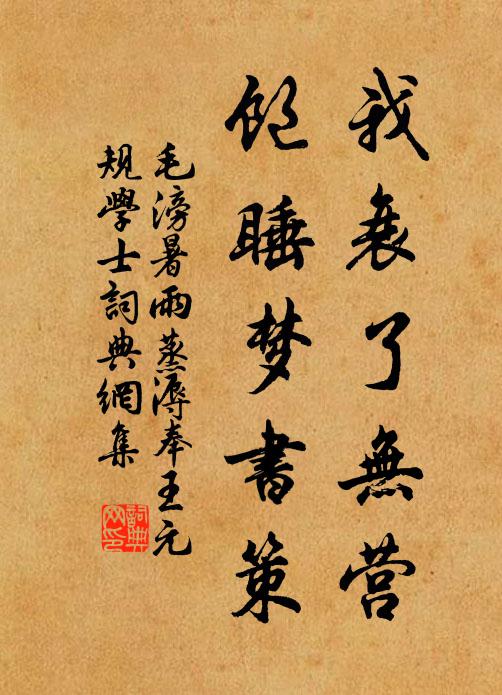 我衰了無营
飽睡梦書策
毛滂暑雨蒸溽奉王元
規學士詞典網集
詞典网印